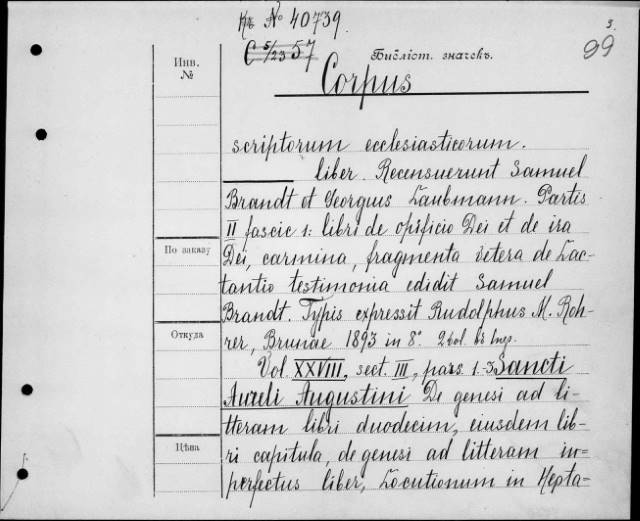 Къ № 40739.
3.
С 5/23 57
99
Инв.
№
Библіот. значекъ.
Corpus
scriptorum ecclesiasticorum.
liber. Recensuerunt Samuel
Brandt et Georgius Laubmann. Partis
II fascic 1: libri de opificio Dei et de ira
По заказу
Dei, carmina, fragmenta vetera de Lac-
tantio testimonia edidit Samuel
Brandt. Typis expressit Rudolphus M. Roh-
Откуда
rer, Brunae 1893 in 8°. 2 vol.
Vol. XXVIII, sect. III, pars 1-3 Sancti
Aureli Augustini De genesi ad li-
tteram libri duodecim, eiusdem lib-
Цѣна
ri capitula, de genesi ad litteram in-
perfectus liber, Locutionum in Hepta-